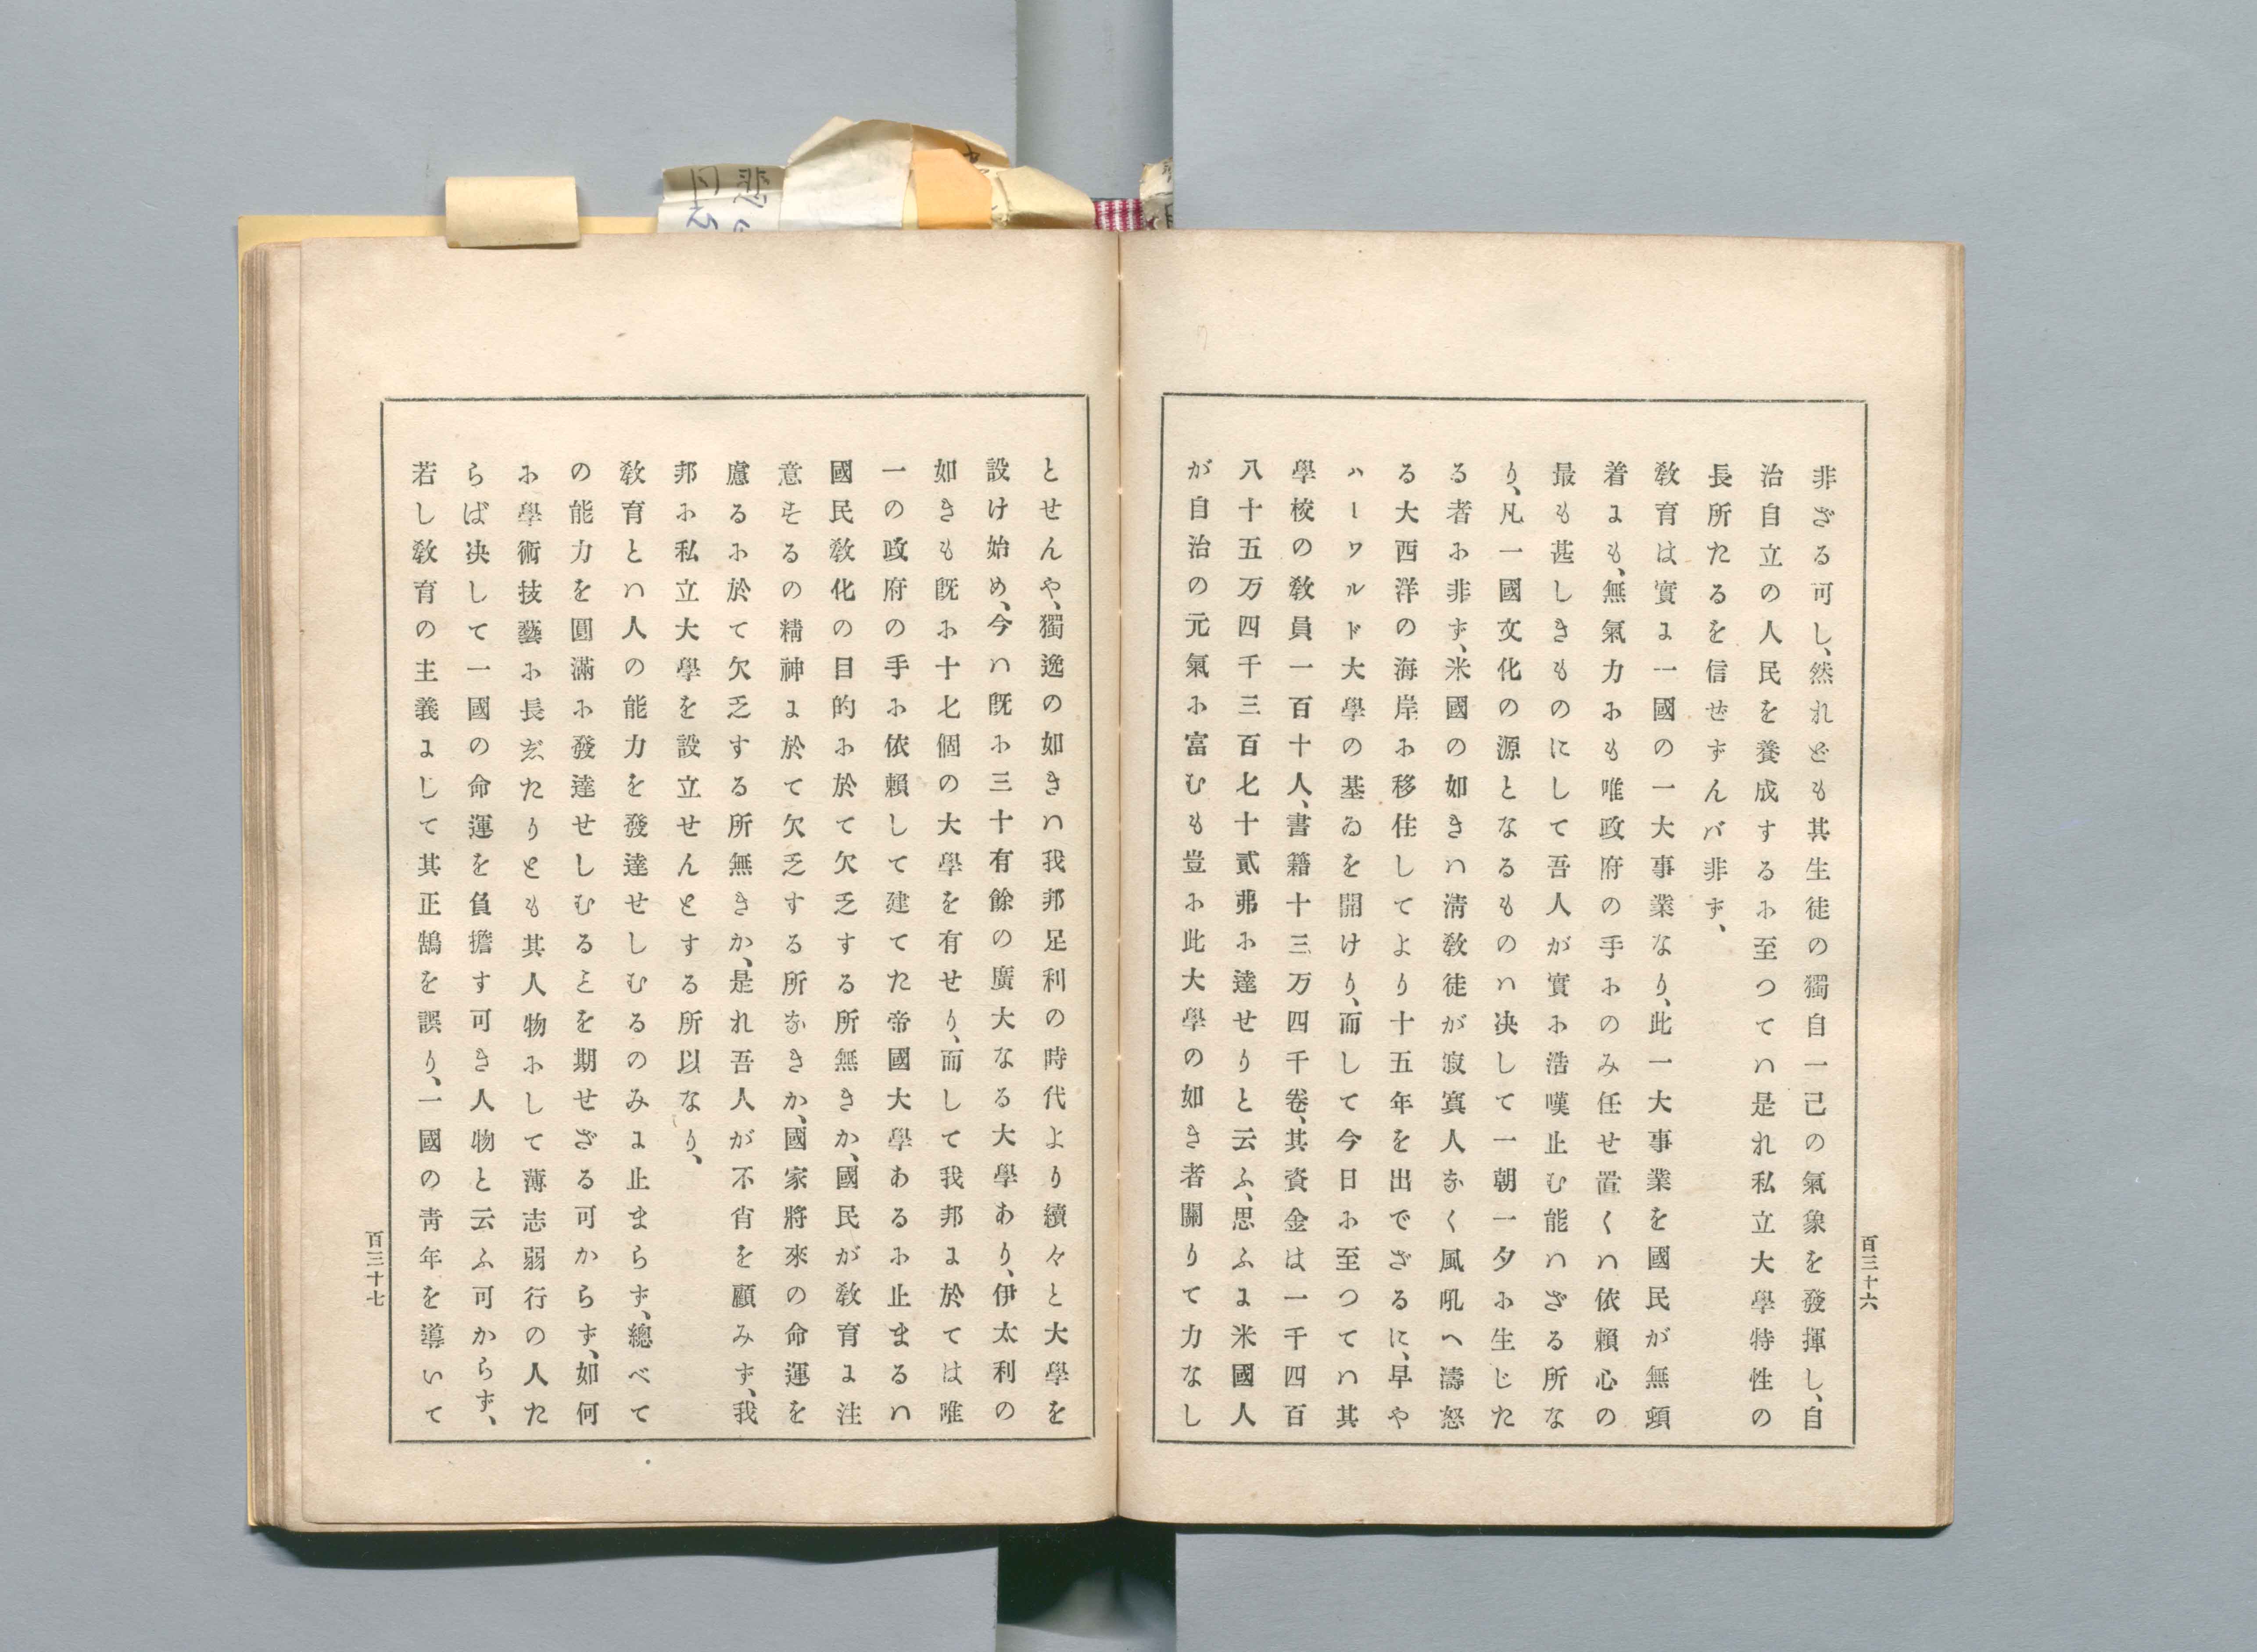 非ざる可し、然れども其生徒の獨自一己の氣象を發揮し、自
治自立の人民を養成するに至つてハ是れ私立大學特性の
長所たるを信せずんバ非ず、
敎育は實に一國の一大事業なり、此一大事業を國民が無頓
着にも、無氣力にも唯政府の手にのみ任せ置くハ依賴心の
最も甚しきものにして吾人が實に浩嘆止む能ハざる所な
り、凡一國文化の源となるものハ决して一朝一夕に生じた
る者に非ず、米國の如きハ淸敎徒が寂寞人なく風吼へ濤怒
る大西洋の海岸に移住してより十五年を出でざるに、早や
ハーワルド大學の基ゐを開けり、而して今日に至つてハ其
學校の敎員一百十人、書籍十三万四千卷、其資金は一千四百
八十五万四千三百七十貳弗に達せりと云ふ、思ふに米國人
が自治の元氣に富むも豈に此大學の如き者關りて力なし
百三十六
とせんや、獨逸の如きハ我邦足利の時代より續々と大學を
設け始め、今ハ既に三十有餘の廣大なる大學あり、伊太利の
如きも既に十七個の大學を有せり、而して我邦に於ては唯
一の政府の手に依賴して建てた帝國大學あるに止まるハ
國民敎化の目的に於て欠乏する所無きか、國民が敎育に注
意するの精神に於て欠乏する所なきか、國家將來の命運を
慮るに於て欠乏する所無きか、是れ吾人が不肖を顧みず、我
邦に私立大學を設立せんとする所以なり、
敎育とハ人の能力を發達せしむるのみに止まらず、總べて
の能力を圓滿に發達せしむるヿを期せざる可からず、如何
に學術技藝に長じたりとも其人物にして薄志弱行の人た
らば决して一國の命運を負擔す可き人物と云ふ可からず、
若し敎育の主義にして其正鵠を誤り、一國の靑年を導いて
百三十七